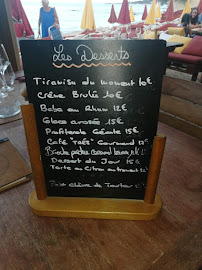 Les Desserts
Tiramisu du moment 10€
Crème Brulée 11€
Baba au Rhum 12€
Glace arrosée 15€
Profiterole Géante 15€
Café "TRÈS" Gourmand 12€
Brioche perdue caramel beurre
Dessert du Jour 15€
Tarte au Citron autrement 12€
Chèvre de